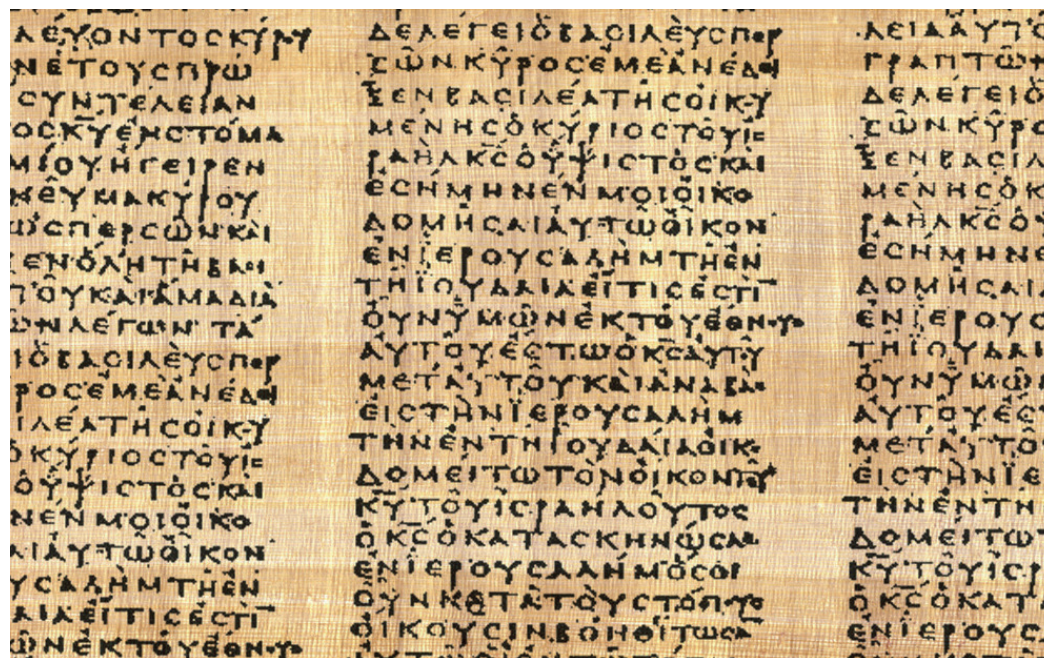 ΛΕΥΟΝΤΟϹΚΥΡΟΥ
ΝΕΤΟΥϹΠΡΩ
ϹΥΝΤΕΛΕΙΑΝ
ΟϹΚ̅Υ̅ΕΝϹΤΟΜΑ
ΜΙΟΥΗΓΕΙΡΕΝ
ΝΕΥΜΑΚΥΡΟΥ
ΩϹΠΕΡϹΩΝΚΑΙ
ΕΝΟΛΗΤΗΒΑϹΙ
ΤΟΥΚΑΙΑΜΑΔΙΑ
ΩΝΛΕΓΩΝΤΑ
ΙΟΒΑϹΙΛΕΥϹΠΕΡ
ΡΟϹΕΜΕΑΝΕΔΕΙ
ΙΛΕΑΤΗϹΟΙΚΟΥ
ΟΚΥΡΙΟϹΤΟΥΙϹ
ΟΥΨΙϹΤΟϹΚΑΙ
ΝΕΝΜΟΙΟΙΚΟ
ΑΙΑΥΤΩΟΙΚΟΝ
ΥϹΑΛΗΜΤΗΕΝ
ΑΙΑΕΙΤΙϹΕϹΤΙ̅
ΩΝΕΚΤΟΥΕΘΝΟΥϹ
ΔΕΛΕΓΕΙΟΒΑϹΙΛΕΥϹΠΕΡ
ϹΩΝΚΥΡΟϹΕΜΕΑΝΕΔΕΙ
ΞΕΝΒΑϹΙΛΕΑΤΗϹΟΙΚΟΥ
ΜΕΝΗϹΟΚΥΡΙΟϹΤΟΥΙϹ
ΡΑΗΛΚ̅Ϲ̅ΟΥΨΙϹΤΟϹΚΑΙ
ΕϹΗΜΗΝΕΝΜΟΙΟΙΚΟ
ΔΟΜΗϹΑΙΑΥΤΩΟΙΚΟΝ
ΕΝΪΕΡΟΥϹΑΛΗΜΤΗΕΝ
ΤΗΙΟΥΔΑΙΑΕΙΤΙϹΕϹΤΙ̅
ΟΥΝΥΜΩΝΕΚΤΟΥΕΘΝΟΥϹ
ΑΥΤΟΥΕϹΤΩΟΚ̅Ϲ̅ΑΥΤΟΥ
ΜΕΤΑΥΤΟΥΚΑΙΑΝΑΒΑϹ
ΕΙϹΤΗΝΪΕΡΟΥϹΑΛΗΜ
ΤΗΝΕΝΤΗΙΟΥΔΑΙΑΟΙΚΟ
ΔΟΜΕΙΤΩΤΟΝΟΙΚΟΝΤΟΥ
Κ̅Υ̅ΤΟΥΙϹΡΑΗΛΟΥΤΟϹ
ΟΚ̅Ϲ̅ΟΚΑΤΑϹΚΗΝΩϹΑϹ
ΕΝΪΕΡΟΥϹΑΛΗΜΟϹΟΙ
ΟΥΝΚΑΤΑΤΟΥϹΤΟΠΟΥϹ
ΟΙΚΟΥϹΙΝΒΟΗΘΙΤΩϹΑ̅
ΛΕΙΑΑΥΤΟ
ΓΡΑΠΤΩΝ
ΔΕΛΕΓΕΙΟ
ϹΩΝΚΥΡΟ
ΞΕΝΒΑϹΙΛ
ΜΕΝΗϹΟΚ
ΡΑΗΛΚ̅Ϲ̅ΟΥ
ΕϹΗΜΗΝΕ
ΔΟΜΗϹΑΙΑ
ΕΝΪΕΡΟΥϹ
ΤΗΙΟΥΔΑΙ
ΟΥΝΥΜΩΝ
ΑΥΤΟΥΕϹ
ΜΕΤΑΥΤΟ
ΕΙϹΤΗΝΪΕ
ΤΗΝΕΝΤΗ
ΔΟΜΕΙΤΩ
Κ̅Υ̅ΤΟΥΙϹΡ
ΟΚ̅Ϲ̅ΟΚΑΤΑ
ΕΝΪΕΡΟΥϹ